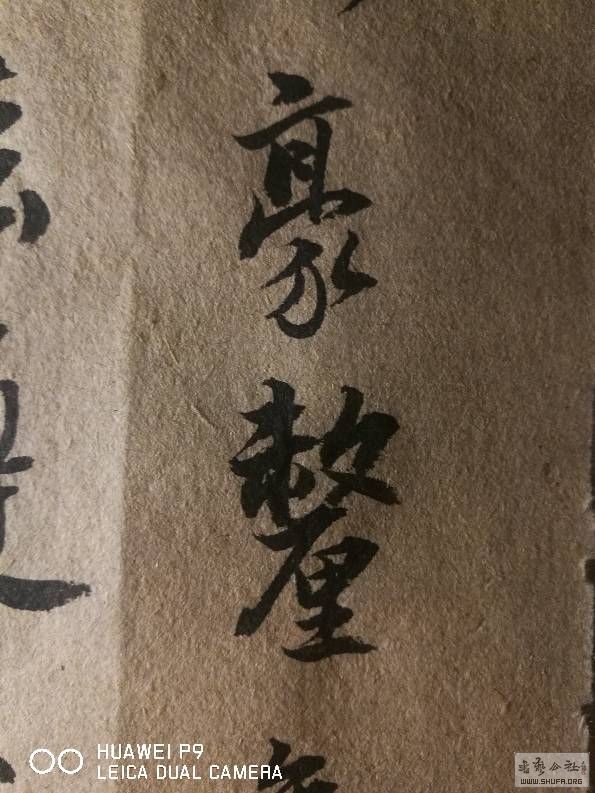 豪釐
HUAWEI P9
LEICA DUAL CAMERA
书艺公社
WWW.SHUFA.ORG